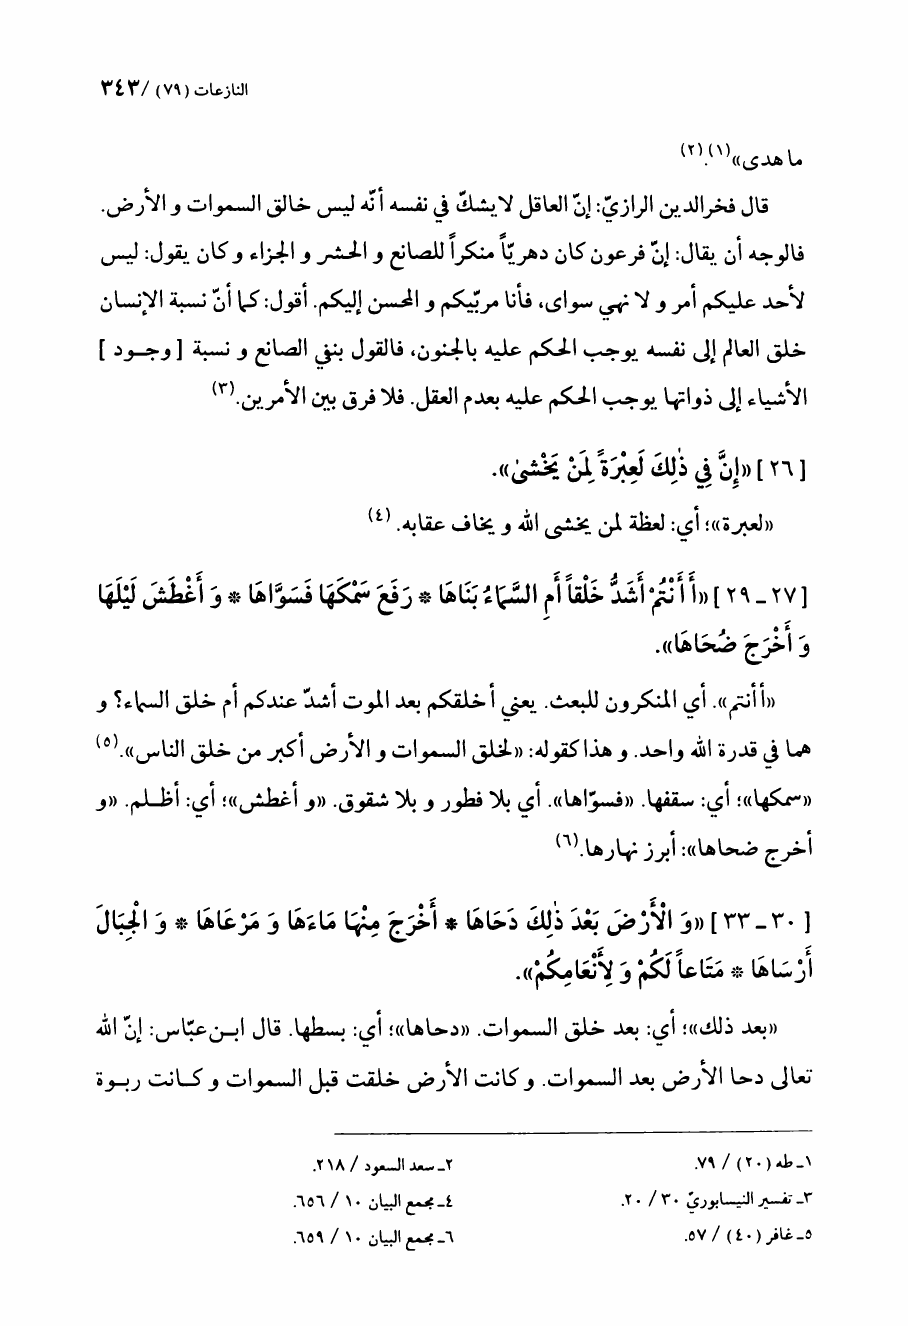 النازعات (٧٩) /٣٤٣
ما هدى»(١).(٢)
قال فخرالدين الرازيّ: إنّ العاقل لايشكّ في نفسه أنّه ليس خالق السموات و الأرض.
فالوجه أن يقال: إنّ فرعون كان دهريّاً منكراً للصانع و الحشر و الجزاء و كان يقول: ليس
لأحد عليكم أمر و لا نهي سواى، فأنا مربّيكم و المحسن إليكم. أقول: كما أنّ نسبة الإنسان
خلق العالم إلى نفسه يوجب الحكم عليه بالجنون، فالقول بنفي الصانع و نسبة [ وجـود ]
الأشياء إلى ذواتها يوجب الحكم عليه بعدم العقل. فلا فرق بين الأمرين.(٣)
[ ٢٦ ] «إِنَّ فِي ذٰلِكَ لَعِبْرَةً لِمَنْ يَخْشىٰ».
«لعبرة»؛ أي: لعظة لمن يخشى الله و يخاف عقابه. (٤)
[ ٢٧ ـ ٢٩ ] «أَ أَنْتُمْ أَشَدُّ خَلْقاً أَمِ السَّمَاءُ بَنَاهَا * رَفَعَ سَمْكَهَا فَسَوَّاهَا * وَ أَغْطَشَ لَيْلَهَا
وَ أَخْرَجَ ضُحَاهَا».
«أ أنتم». أي المنكرون للبعث. يعني أ خلقكم بعد الموت أشدّ عندكم أم خلق السماء؟ و
هما في قدرة الله واحد. و هذا كقوله: «لخلق السموات و الأرض أكبر من خلق الناس».(٥)
«سمكها»؛ أي: سقفها. «فسوّاها». أي بلا فطور و بلا شقوق. «و أغطش»؛ أي: أظـلم. «و
أخرج ضحاها»: أبرز نهارها.(٦)
[ ٣٠ ـ ٣٣ ] «وَ الْأَرْضَ بَعْدَ ذٰلِكَ دَحَاهَا * أَخْرَجَ مِنْهَا مَاءَهَا وَ مَرْعَاهَا * وَ الْجِبَالَ
أَرْسَاهَا * مَتَاعاً لَكُمْ وَ لِأَنْعَامِكُمْ».
«بعد ذلك»؛ أي: بعد خلق السموات. «دحاها»؛ أي: بسطها. قال ابـن‌عبّاس: إنّ الله
تعالى دحا الأرض بعد السموات. و كانت الأرض خلقت قبل السموات و كـانت ربـوة
١ـ طه (٢٠) / ٧٩.
٢ـ سعد السعود / ٢١٨.
٣ـ تفسير النيسابوريّ ٣٠ / ٢٠.
٤ـ مجمع البيان ١٠ / ٦٥٦.
٥ـ غافر (٤٠) / ٥٧.
٦ـ مجمع البيان ١٠ / ٦٥٩.